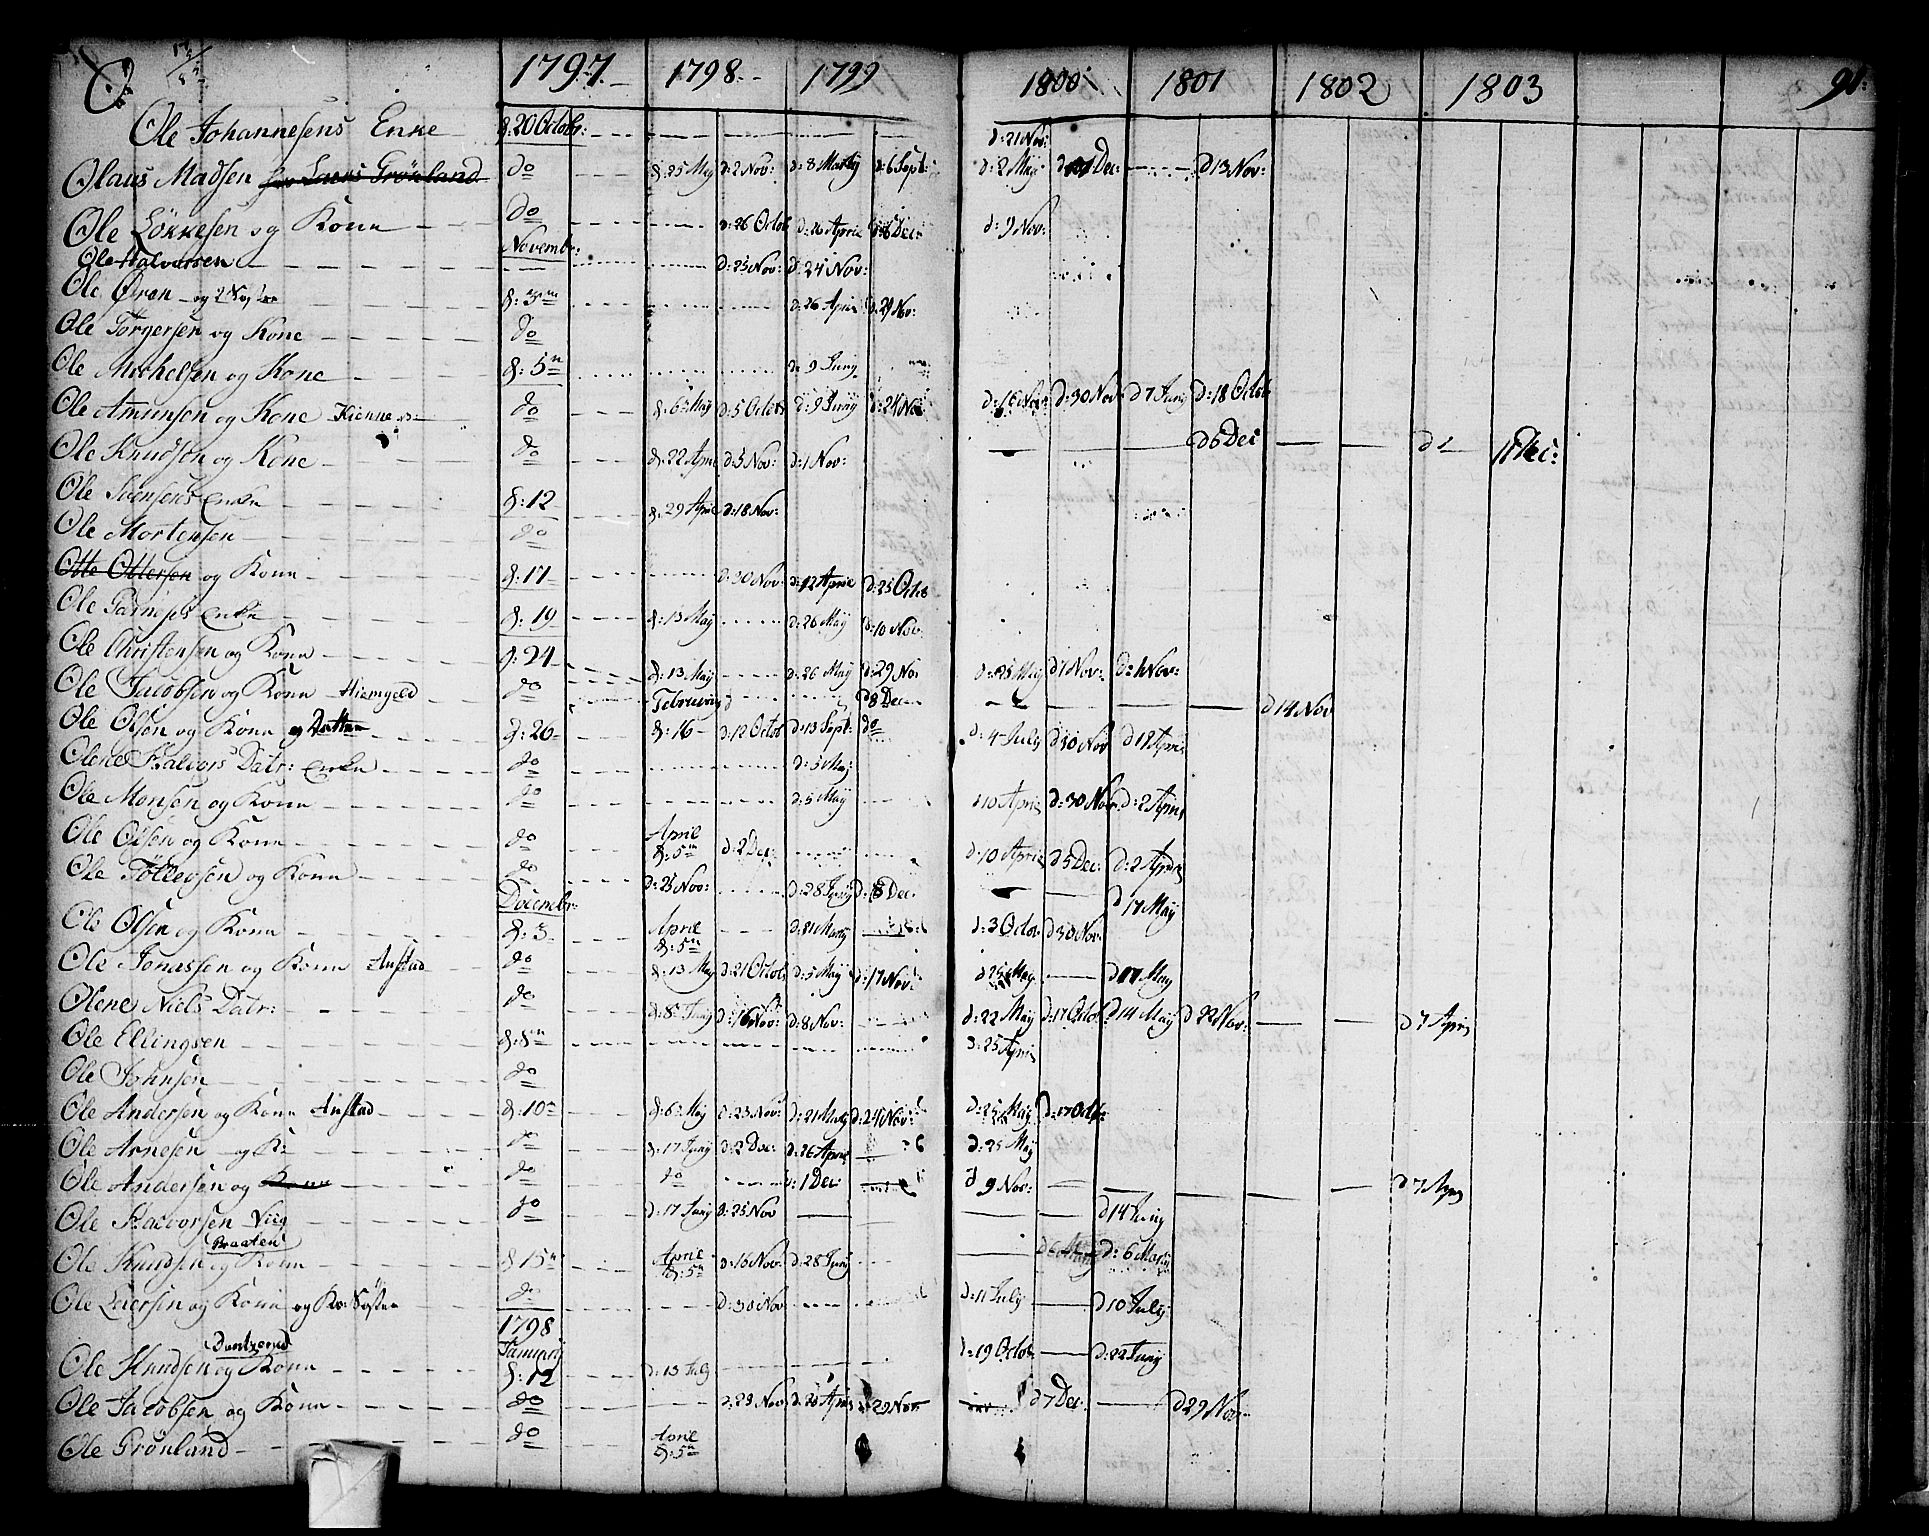 O. 1797. 1798. 1799 1800 1801 1802 1803 91.
Ole Johannesens Enke d: 20 Octobr: d: 21 Nov:
Olaus Madsen Lars Grönland do d: 25 May d: 2 Nov: d: 8 Marty d: 6 Sept: d: 2 May Dec: d 13 Nov:
Ole Lökkesen og Kone do d: 26 Octob d: 26 April Dec: d: 9 Nov:
Novembr:
Ole Halvorsen d: 23 Nov: d: 24 Nov:
Ole Oran og 2 Søstre d: 3 d: 26 April d: 29 Nov:
Ole Torgersen og Kone do
Ole Michelsen og Kone d: 5 d: 9 Juny
Ole Amunsen og Kone do d: 6 May d: 5 Octob d: 9 Juny d: 24 Nov d: 30 Nov d 7 Juny d: 18 Octob
Ole Knudsen og Kone do d: 22 April d: 3 Nov: d: 1 Nov: d 6 Dec Dec:
Ole Svensens Enke d: 12 d: 29 April d: 18 Nov:
Ole Mortensen do
Otte Ottersen og Kone d: 17 d: 30 Nov d: 12 April d: 25 Octob
Ole Enke d: 19 d: 13 May d: 26 May d: 10 Nov
Ole Christensen og Kone d: 24 d: 13 May d: 26 May d: 29 Nov d: 25 May d 1 Nov: d: 1 Nov:
Ole Jacobsen og Kone Hiemgeld do February d 8 Dec d 14 Nov
Ole Olsen og Kone og Datter d: 26 d: 16 d: 12 Octob d: 13 Sept: do d: 4 July d 30 Nov d 18 April
Olene Halvors Datr: Enke do d: 5 May
Ole Monsen og Kone do d: 5 May d 10 April d: 30 Nov d: 2 April
Ole Olsen og Kone do April d: 5 d: 2 Dec: d: 10 April d 5 Dec: d: 2 April
Ole Tollevsen og Kone do d: 25 Nov: d: 28 Juny d: 8 Dec: d 17 May
Decembr:
Ole Olsen og Kone d: 3 April d: 5 d: 3 Octob d 30 Nov.
Ole Jonassen og Kone Anstad do d: 13 May d: 21 Octob d: 5 May d: 17 Nov: d 25 May d 17 May
Olene Niels Datr: do d: 8 Juny d: 16 Nov: d: 8 Nov: d: 22 May d: 17 Octob d 14 May d 22 Nov: d 7 April
Ole Ellingsen d: 8 d: 25 April
Ole Johnsen do
Ole Andersen og Kone Anstad d: 10 d: 6 May d: 23 Nov: d: 21 May d: 24 Nov: d: 25 May d: 17 Octob
Ole Arnesen og K: do d: 17 Juny d: 2 Dec: d: 26 April d: 25 May
Ole Andersen og Kone do do d: 1 Dec: d 9 Nov: d 7 April
Ole Halvorsen Viig do d: 17 Juny d: 25 Nov d 14 Juny
Braaten
Ole Knudsen og Kone d: 15 April d: 5 d: 16 Nov: d: 28 Juny d: 6 May
Ole Larsen og Kone og Ko: Søster do d: 30 Nov d: 11 July d 10 July
1798
Januarij
Ole Knudsen og Kone d: 12 d: 13 July d: 19 Octob d: 22 Juny
Ole Jacobsen og Kone do d: 29 Nov d: 26 April 29 Nov d 7 Dec: d 29 Nov:
Ole Grönland do April d: 5